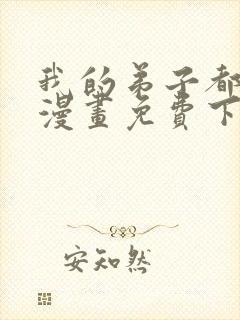 我的弟子都
漫畫免費下
安知然